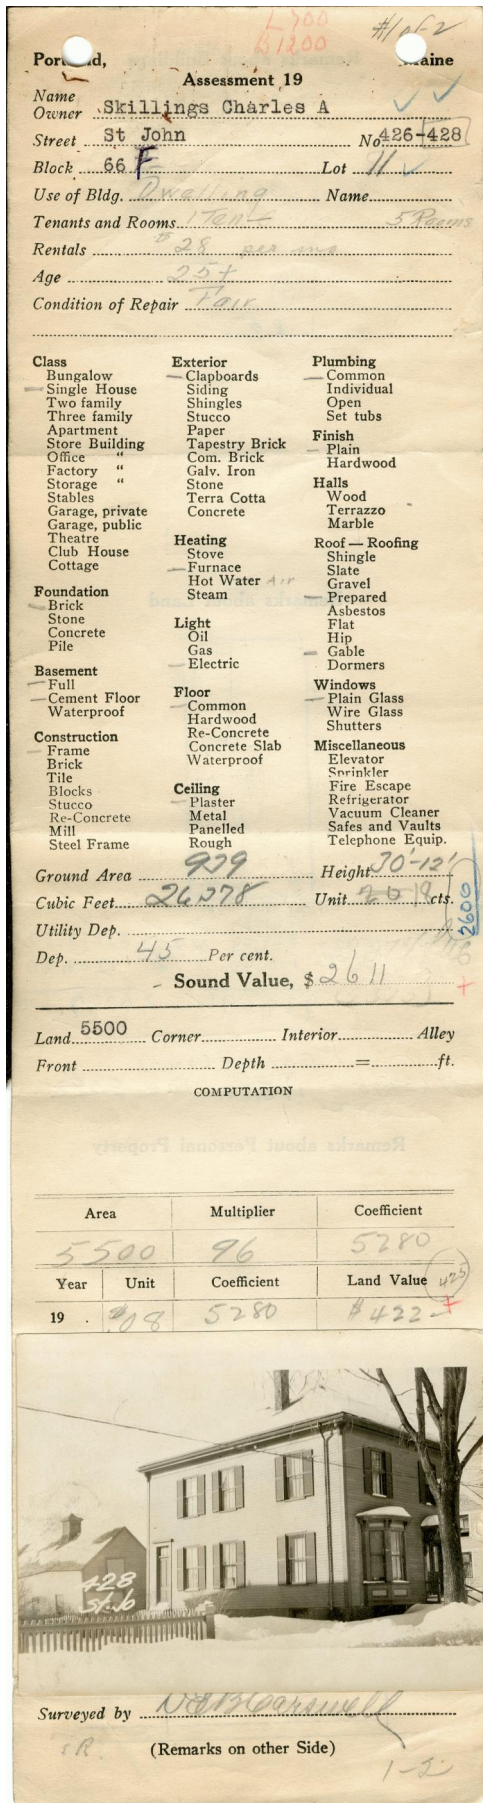 L 400
B 1200
#1 of 2
Portland, Maine
Assessment 19
Name
Owner Skillings Charles A
Street St John No 426-428
Block 66 F Lot 11
Use of Bldg. Dwelling Name
Tenants and Rooms 1 Ten 5 Rooms
Rentals $28 per mo
Age 25+
Condition of Repair Fair
Class
Bungalow
Single House
Two family
Three family
Apartment
Store Building
Office "
Factory "
Storage "
Stables
Garage, private
Garage, public
Theatre
Club House
Cottage
Foundation
Brick
Stone
Concrete
Pile
Basement
Full
Cement Floor
Waterproof
Construction
Frame
Brick
Tile
Blocks
Stucco
Re-Concrete
Mill
Steel Frame
Exterior
Clapboards
Siding
Shingles
Stucco
Paper
Tapestry Brick
Com. Brick
Galv. Iron
Stone
Terra Cotta
Concrete
Heating
Stove
Furnace
Hot Water Air
Steam
Light
Oil
Gas
Electric
Floor
Common
Hardwood
Re-Concrete
Concrete Slab
Waterproof
Ceiling
Plaster
Metal
Panelled
Rough
Plumbing
Common
Individual
Open
Set tubs
Finish
Plain
Hardwood
Halls
Wood
Terrazzo
Marble
Roof — Roofing
Shingle
Slate
Gravel
Prepared
Asbestos
Flat
Hip
Gable
Dormers
Windows
Plain Glass
Wire Glass
Shutters
Miscellaneous
Elevator
Sprinkler
Fire Escape
Refrigerator
Vacuum Cleaner
Safes and Vaults
Telephone Equip.
Ground Area 979 Height 30'-12'
Cubic Feet 26378 Unit 18 cts.
2600
Utility Dep.
Dep. 45 Per cent.
Sound Value, $ 2611
Land 5500 Corner Interior Alley
Front Depth = ft.
COMPUTATION
Area Multiplier Coefficient
5500 96 5280
Year Unit Coefficient Land Value 425
19 . $.08 5280 $422
428
St. Jo
Surveyed by
(Remarks on other Side)
1-2